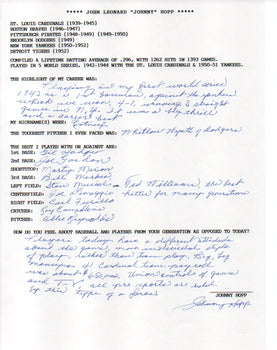 ***** JOHN LEONARD "JOHNNY" HOPP *****
ST. LOUIS CARDINALS (1939-1945)
BOSTON BRAVES (1946-1947)
PITTSBURGH PIRATES (1948-1949) (1949-1950)
BROOKLYN DODGERS (1949)
NEW YORK YANKEES (1950-1952)
DETROIT TIGERS (1952)
COMPILED A LIFETIME BATTING AVERAGE OF .296, WITH 1262 HITS IN 1393 GAMES.
PLAYED IN 5 WORLD SERIES, 1942-1944 WITH THE ST. LOUIS CARDINALS & 1950-51 YANKEES.
THE HIGHLIGHT OF MY CAREER WAS:
Playing in my first world series
1942 as a 1st baseman against the Yankees
which we won, 4-1, winning 3 straight
games in N.Y.
MY NICKNAME(S) WERE:
THE TOUGHEST PITCHER I EVER FACED WAS: Whitlow Wyatt of Dodgers
THE BEST I PLAYED WITH OR AGAINST ARE:
1st BASE: Gil Hodges
2nd BASE: Joe Gordon
SHORTSTOP: Marty Marion
3rd BASE:
LEFT FIELD: Stan Musial - Ted Williams, the best
CENTER FIELD: Joe Dimaggio hitter for many generations
RIGHT FIELD: Carl Furillo
CATCHER: Roy Campanella
PITCHER: Allie Reynolds
HOW DO YOU FEEL ABOUT BASEBALL AND PLAYERS FROM YOUR GENERATION AS OPPOSED TO TODAY?
Players today have a different attitude
about the game, more individual style
of play, rather than team play. Big, big
money. Cardinal team payroll
was about Union control of game
and T.V. all pro sports
by this type of
JOHNNY HOPP
Johnny Hopp